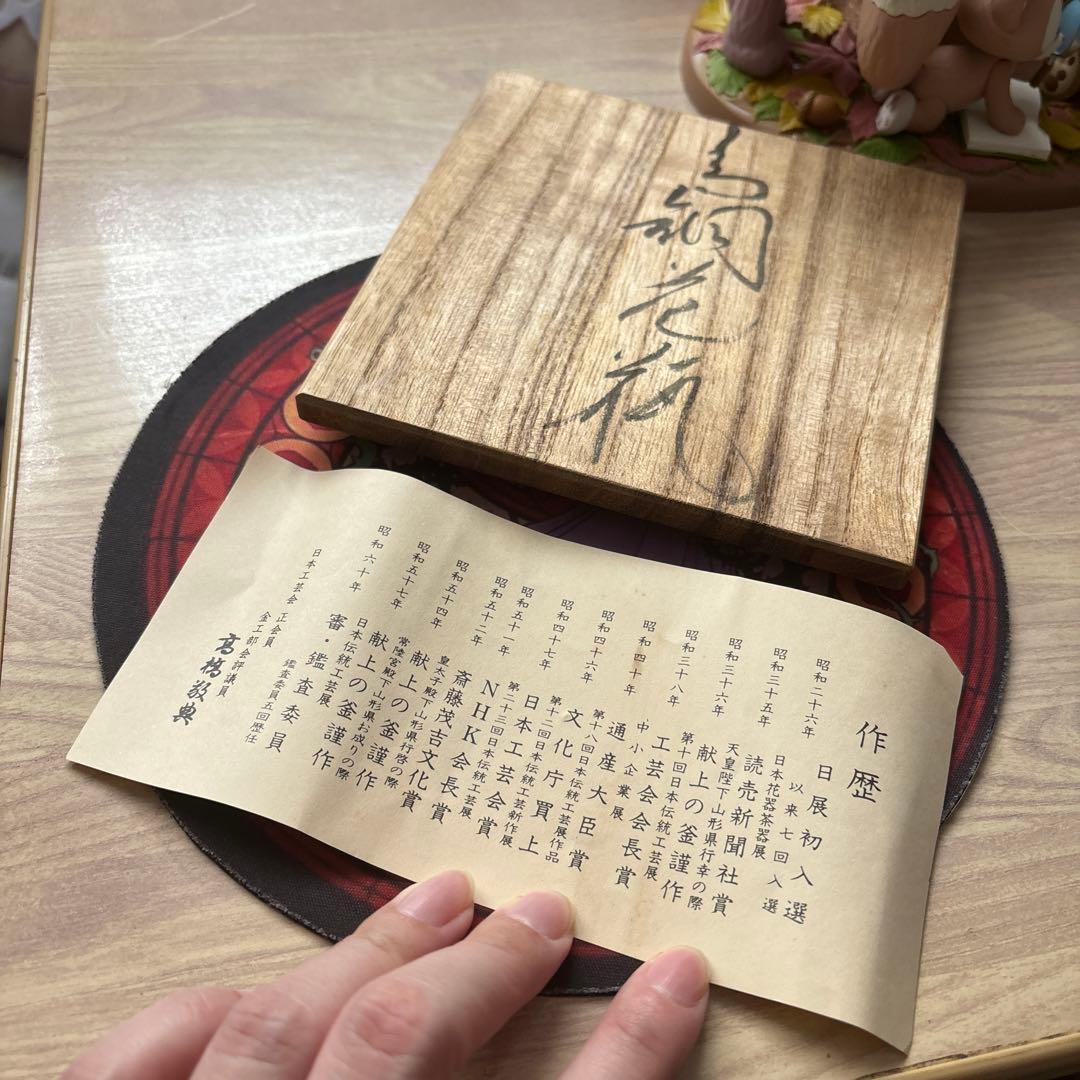 銅花瓶
作歴
昭和二十六年 日展初入選
以来七回入選
昭和三十五年 日本花器茶器展
読売新聞社賞
昭和三十六年 天皇陛下山形県行幸の際
献上の釜謹作
昭和三十八年 第十回日本伝統工芸展
工芸会会長賞
昭和四十年 中小企業展
通産大臣賞
昭和四十六年 第十八回日本伝統工芸展作品
文化庁買上
昭和四十七年 第十二回日本伝統工芸新作展
日本工芸会賞
昭和五十一年 第二十三回日本伝統工芸展
NHK会長賞
昭和五十二年 斎藤茂吉文化賞
昭和五十四年 皇太子殿下山形県行啓の際
献上の釜謹作
昭和五十七年 常陸宮殿下山形県お成りの際
献上の釜謹作
昭和六十年 日本伝統工芸展
審・鑑査委員
日本工芸会 正会員 鑑査委員五回歴任
金工部会評議員
高橋敬典